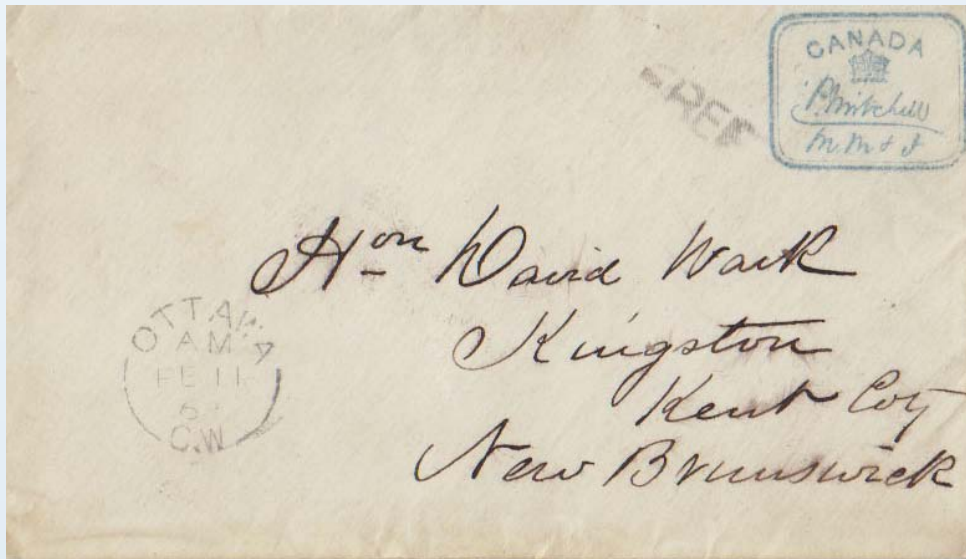 CANADA
P. Mitchell
M. M & F
FREE
Hon David Wark
Kingston
Kent Coy
New Brunswick
OTTAWA
AM
FE 11
C.W